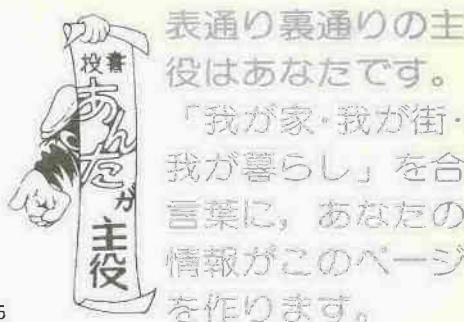 投書
あんたが
主役
表通り裏通りの主
役はあなたです。
「我が家・我が街・
我が暮らし」を合
言葉に，あなたの
情報がこのページ
を作ります。
5